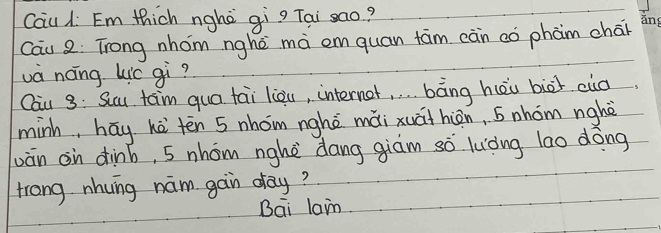 Câu 1: Em thích nghề gì? Tại sao?
Câu 2: Trong nhóm nghề mà em quan tâm cần có phẩm chất
và năng lực gì?
Câu 3: Sưu tầm qua tài liệu, internet,... bằng hiểu biết của
mình, hãy kể tên 5 nhóm nghề mới xuất hiện, 5 nhóm nghề
vẫn ổn định, 5 nhóm nghề đang giảm số lượng lao động
trong những năm gần đây?
Bài làm